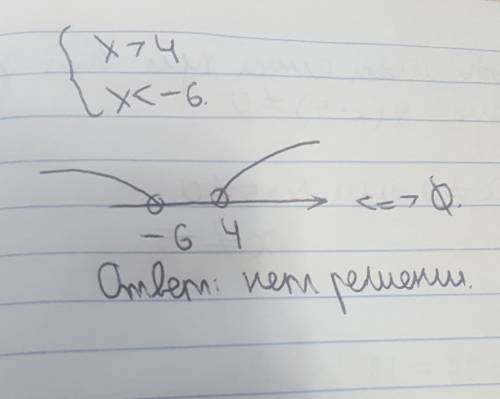 { x > 4
x < -6.
<=> Ø.
-6 4
Ответ: нет решении.